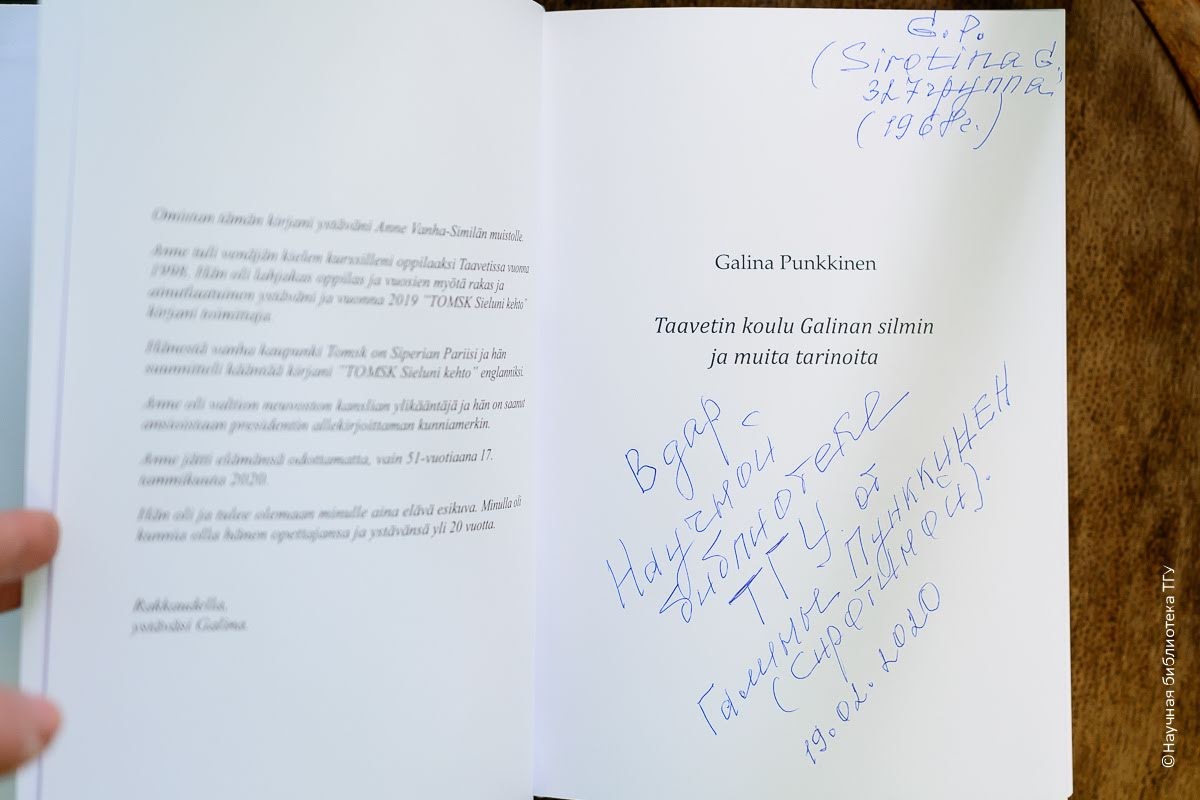 Omistan tämän kirjani ystäväni Anne Vanha-Similän muistolle.
Anne tuli venäjän kielen kurssilleni oppilaaksi Taavetissa vuonna
1998. Hän oli lahjakas oppilas ja vuosien myötä rakas ja
ainutlaatuinen ystäväni ja vuonna 2019 "TOMSK Sieluni kehto"
kirjani toimittaja.
Hänestä vanha kaupunki Tomsk on Siperian Pariisi ja hän
suunnitteli kääntää kirjani "TOMSK Sieluni kehto" englanniksi.
Anne oli valtion neuvoston kanslian ylikääntäjä ja hän on saanut
ansioistaan presidentin allekirjoittaman kunniamerkin.
Anne jätti elämänsä odottamatta, vain 51-vuotiaana 17.
tammikuuta 2020.
Hän oli ja tulee olemaan minulle aina elävä esikuva. Minulla oli
kunnia olla hänen opettajansa ja ystävänsä yli 20 vuotta.
Rakkaudella,
ystäväsi Galina.
G. P.
(Sirotina G.,
327 группа,
(1968г.)
Galina Punkkinen
Taavetin koulu Galinan silmin
ja muita tarinoita
В дар
Научной
библиотеке
ТГУ от
Галины Пунккинен
(Сиротиной).
19.02.2020
©Научная библиотека ТГУ